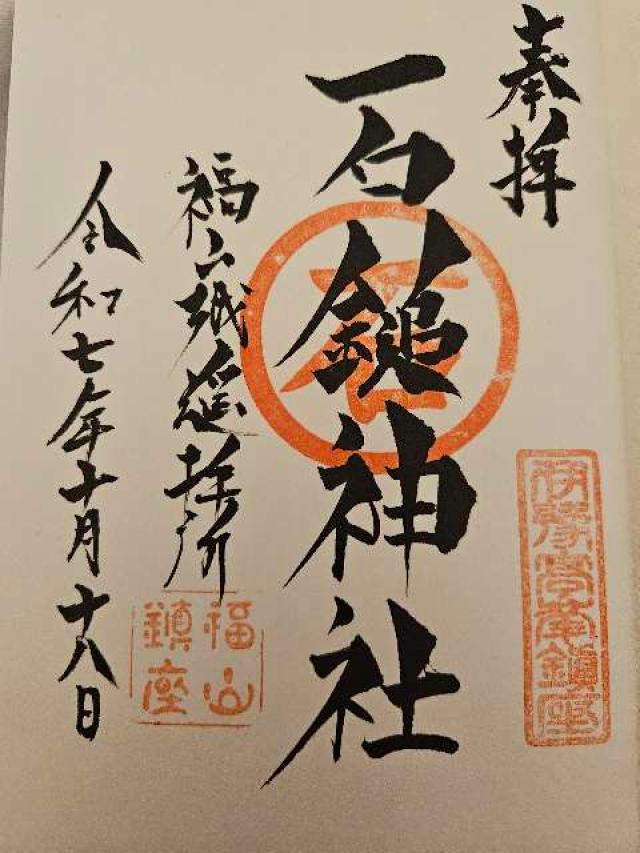 奉拝
石鎚神社
福山祇遥拝所
令和七年十月十八日
石
福山
鎮座